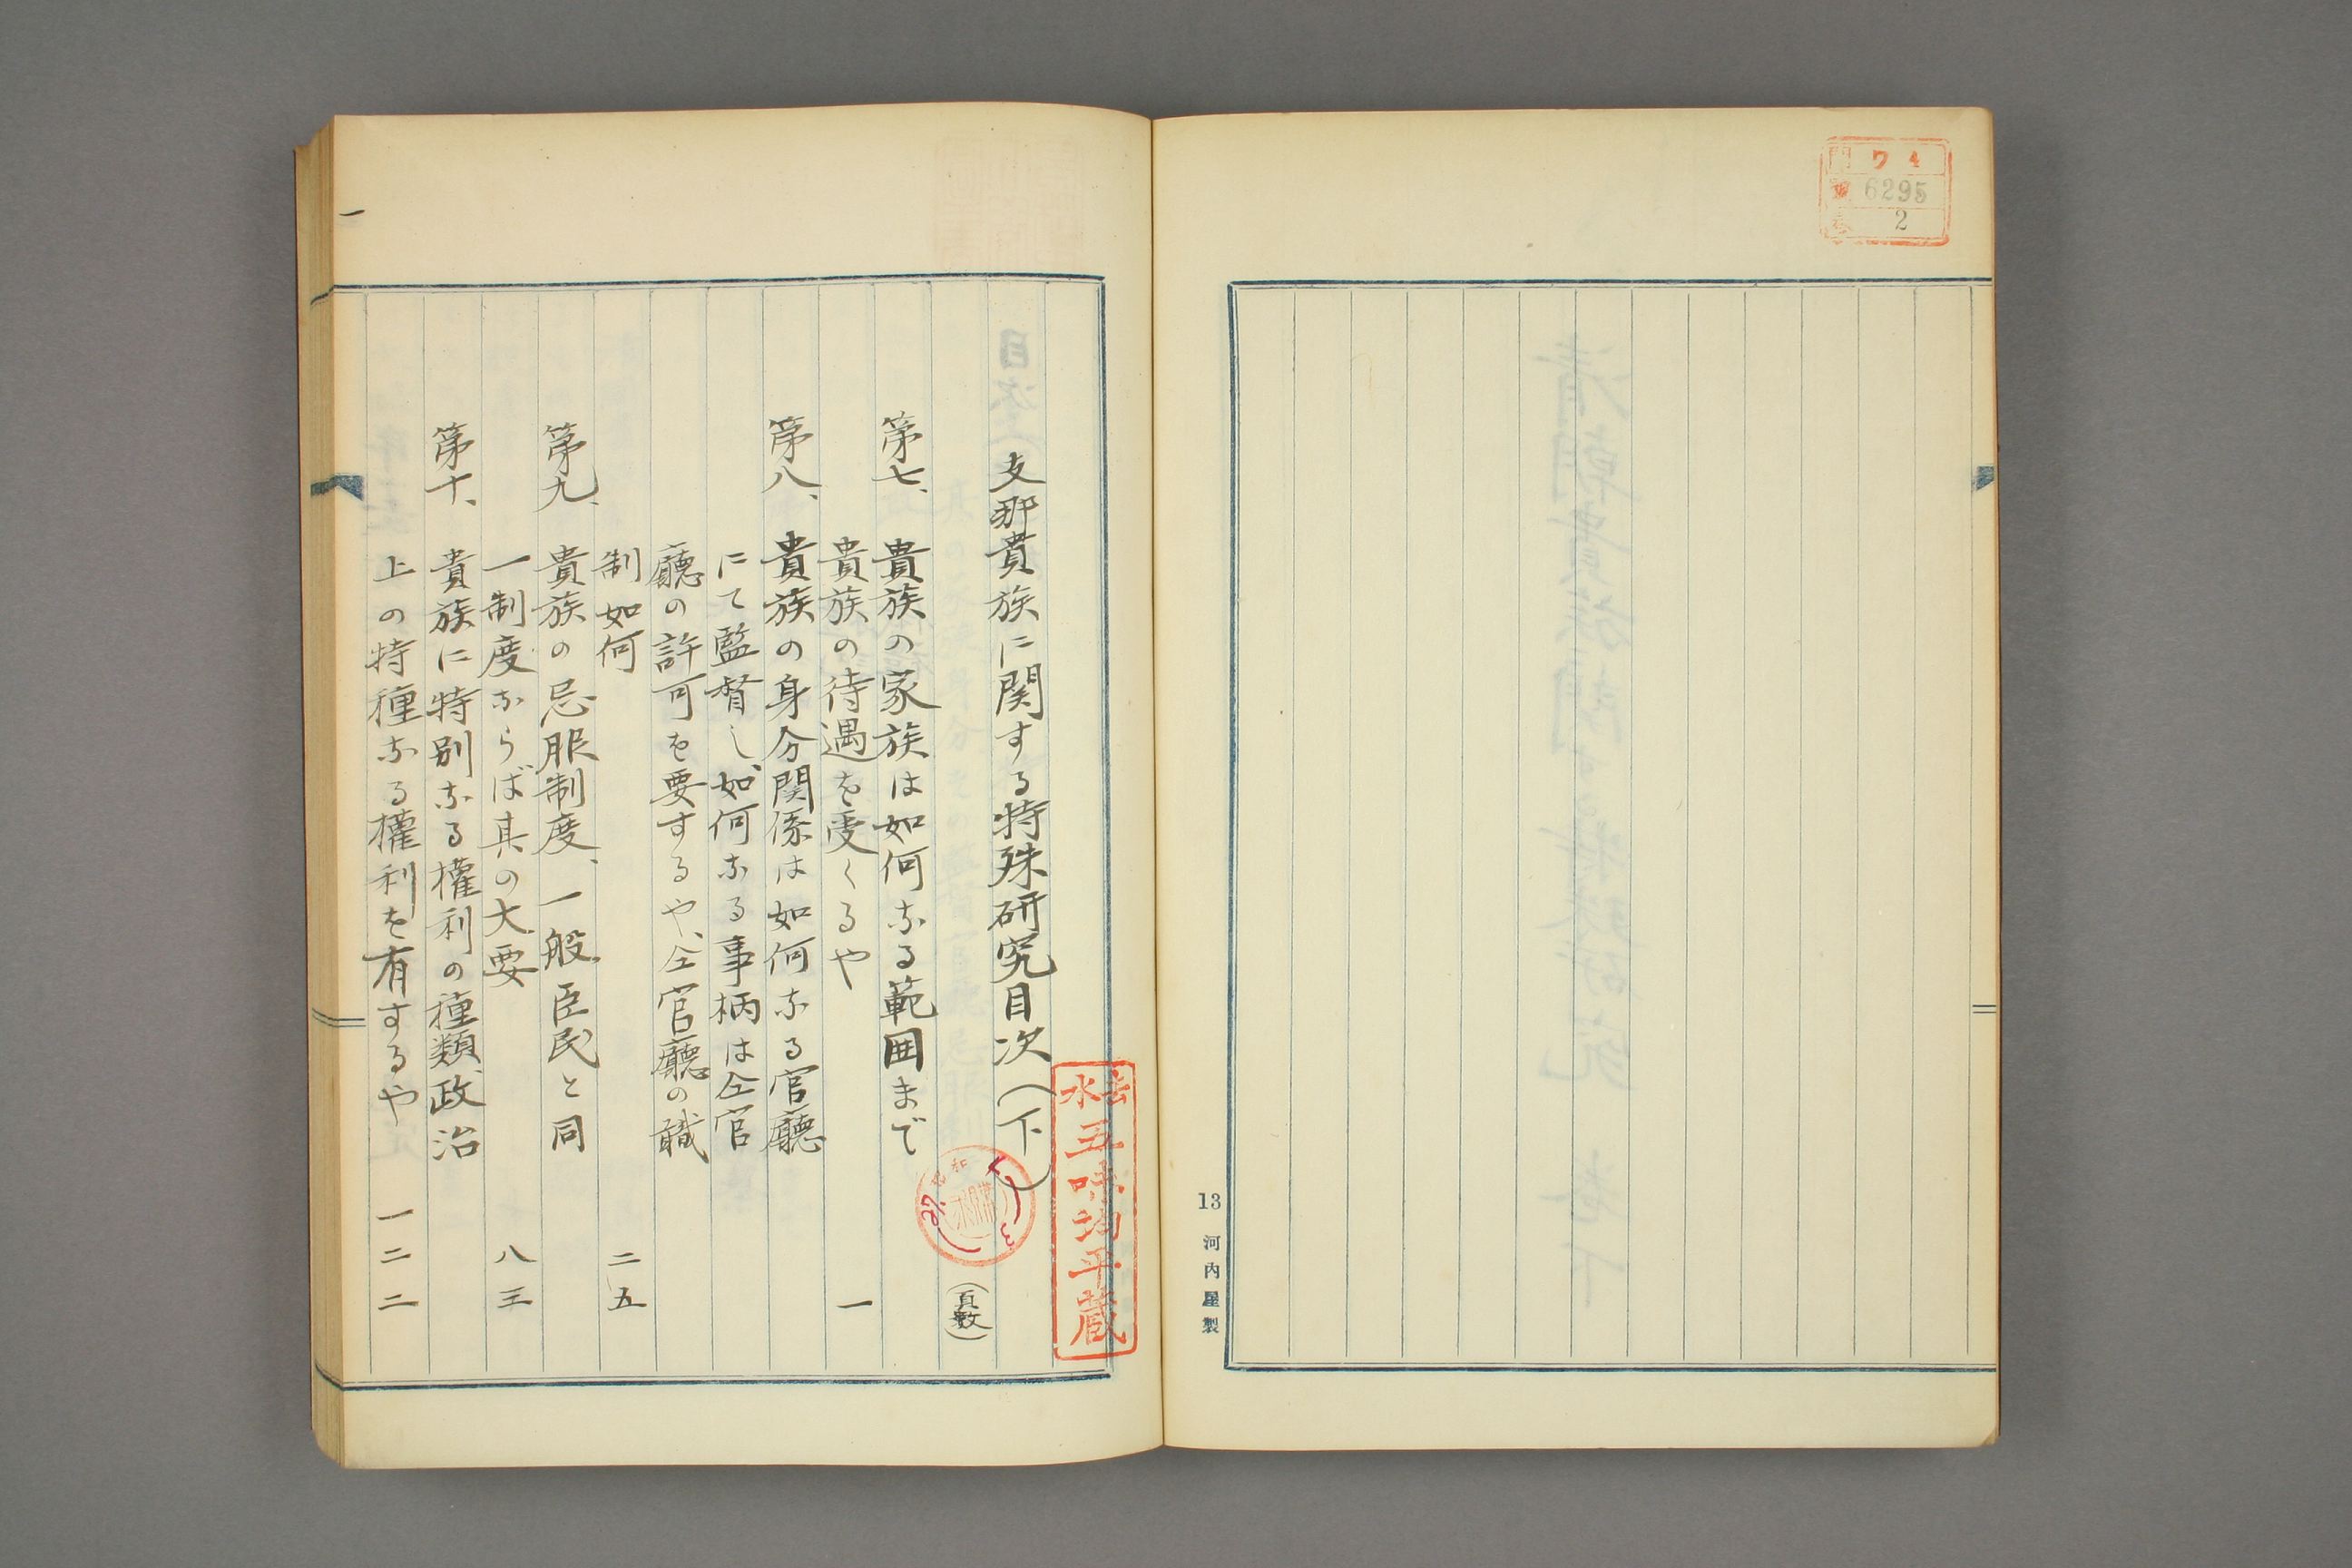 門 ワ 4
號 6295
卷 2
13 河内屋製
支那貴族に関する特殊研究目次(下)
(頁数)
第七、貴族の家族は如何なる範囲まで
貴族の待遇を受くるや 一
第八、貴族の身分関係は如何なる官廳
にて監督し、如何なる事柄は仝官
廳の許可を要するや、仝官廳の職
制如何 二五
第九、貴族の忌服制度、一般臣民と同
一制度ならば其の大要 八三
第十、貴族に特別なる權利の種類、政治
上の特種なる權利を有するや 一二二
一
五味均平蔵